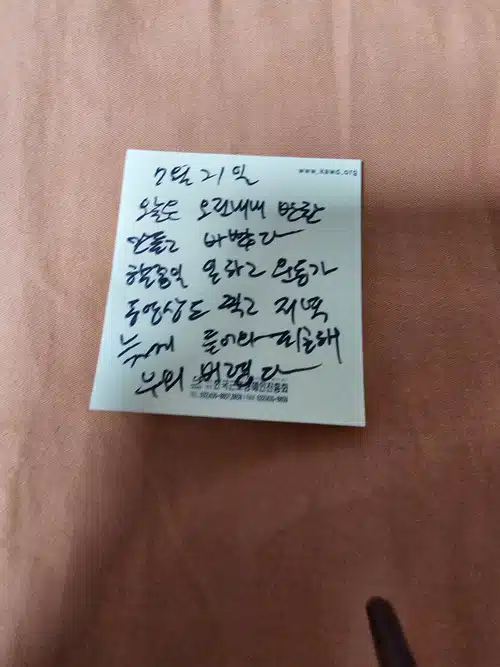 www.kawd.org
7월 21일
오늘은 오전내내 반찬
만들고 바빴다
할일 일하고 운동가
동영상도 찍고 저녁
늦게 들어와 피곤해
누워 버렸다
한국근로장애인진흥회